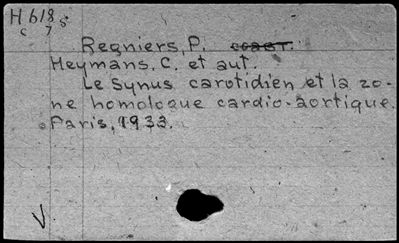 H 618s
c 7
Regniers, P.
Heymans, C. et aut.
Le Synus carotidien et la zo-
ne homologue cardio-aortique.
Paris, 1933.